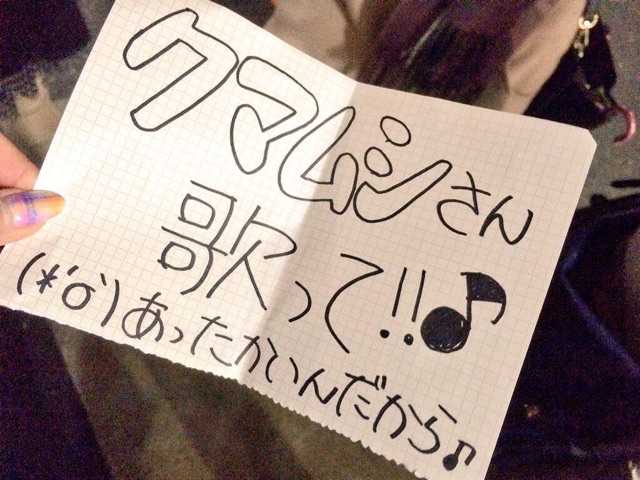 クマムシさん
歌って!!♪
(*'o')あったかいんだから♪